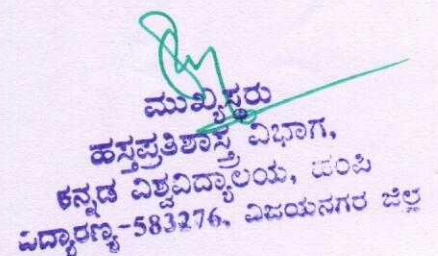 ಮುಖ್ಯಸ್ಥರು
ಹಸ್ತಪ್ರತಿಶಾಸ್ತ್ರ ವಿಭಾಗ,
ಕನ್ನಡ ವಿಶ್ವವಿದ್ಯಾಲಯ, ಹಂಪಿ
ವಿದ್ಯಾರಣ್ಯ-583276, ವಿಜಯನಗರ ಜಿಲ್ಲೆ